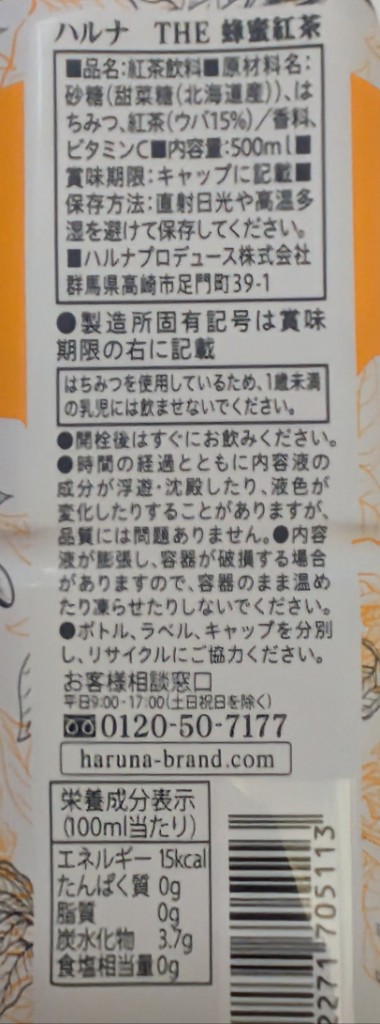 ハルナ THE 蜂蜜紅茶
■品名:紅茶飲料■原材料名:
砂糖(甜菜糖(北海道産))、は
ちみつ、紅茶(ウバ15%)/香料、
ビタミンC■内容量:500ml■
賞味期限:キャップに記載■
保存方法:直射日光や高温多
湿を避けて保存してください。
■ハルナプロデュース株式会社
群馬県高崎市足門町39-1
●製造所固有記号は賞味
期限の右に記載
はちみつを使用しているため、1歳未満
の乳児には飲ませないでください。
●開栓後はすぐにお飲みください。
●時間の経過とともに内容液の
成分が浮遊・沈殿したり、液色が
変化したりすることがありますが、
品質には問題ありません。●内容
液が膨張し、容器が破損する場合
がありますので、容器のまま温め
たり凍らせたりしないでください。
●ボトル、ラベル、キャップを分別
し、リサイクルにご協力ください。
お客様相談窓口
平日9:00-17:00(土日祝日を除く)
0120-50-7177
haruna-brand.com
栄養成分表示
(100ml当たり)
エネルギー 15kcal
たんぱく質 0g
脂質 0g
炭水化物 3.7g
食塩相当量 0g
2271 705113